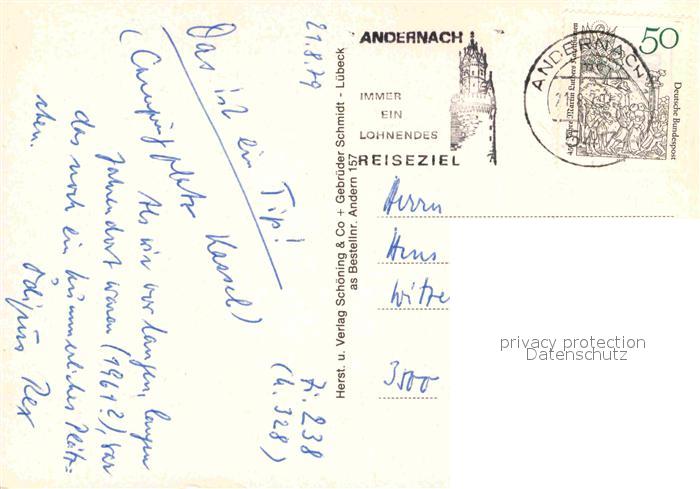 21.8.79
Das ist ein Tip!
(Campingplatz Kassel)
Als wir vor langen, langen
Jahren dort waren (1961?), war
das noch ein kümmerliches Plätz=
chen.
Ödipus Rex
Fi. 238
(h. 328)
Herst. u. Verlag Schöning & Co + Gebrüder Schmidt - Lübeck
as Bestellnr. Andern 157
ANDERNACH
IMMER
EIN
LOHNENDES
REISEZIEL
ANDERNACH
50
Deutsche Bundespost
Herrn
Hans
Witze
3500
privacy protection
Datenschutz